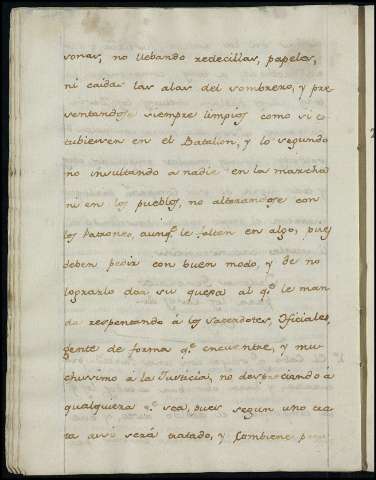 sonas, no llebando redecillas, papeles,
ni caidas las alas del sombrero, y pre
sentandose siempre limpios como si es
tubiesen en el Batallon, y lo segundo
no insultando a nadie en la marcha
ni en los pueblos, no alterandose con
los Patrones, aunq.e le falten en algo, pues
deben pedir con buen modo, y de no
lograrlo dar su quexa al q.e le man
da respetando à los Sacerdotes, Oficiales,
gente de forma q.e encuentre, y mu
chissimo à la Justicia, no despreciando à
qualquiera q.e sea, pues segun uno tra
ta assi será tratado, y combiene